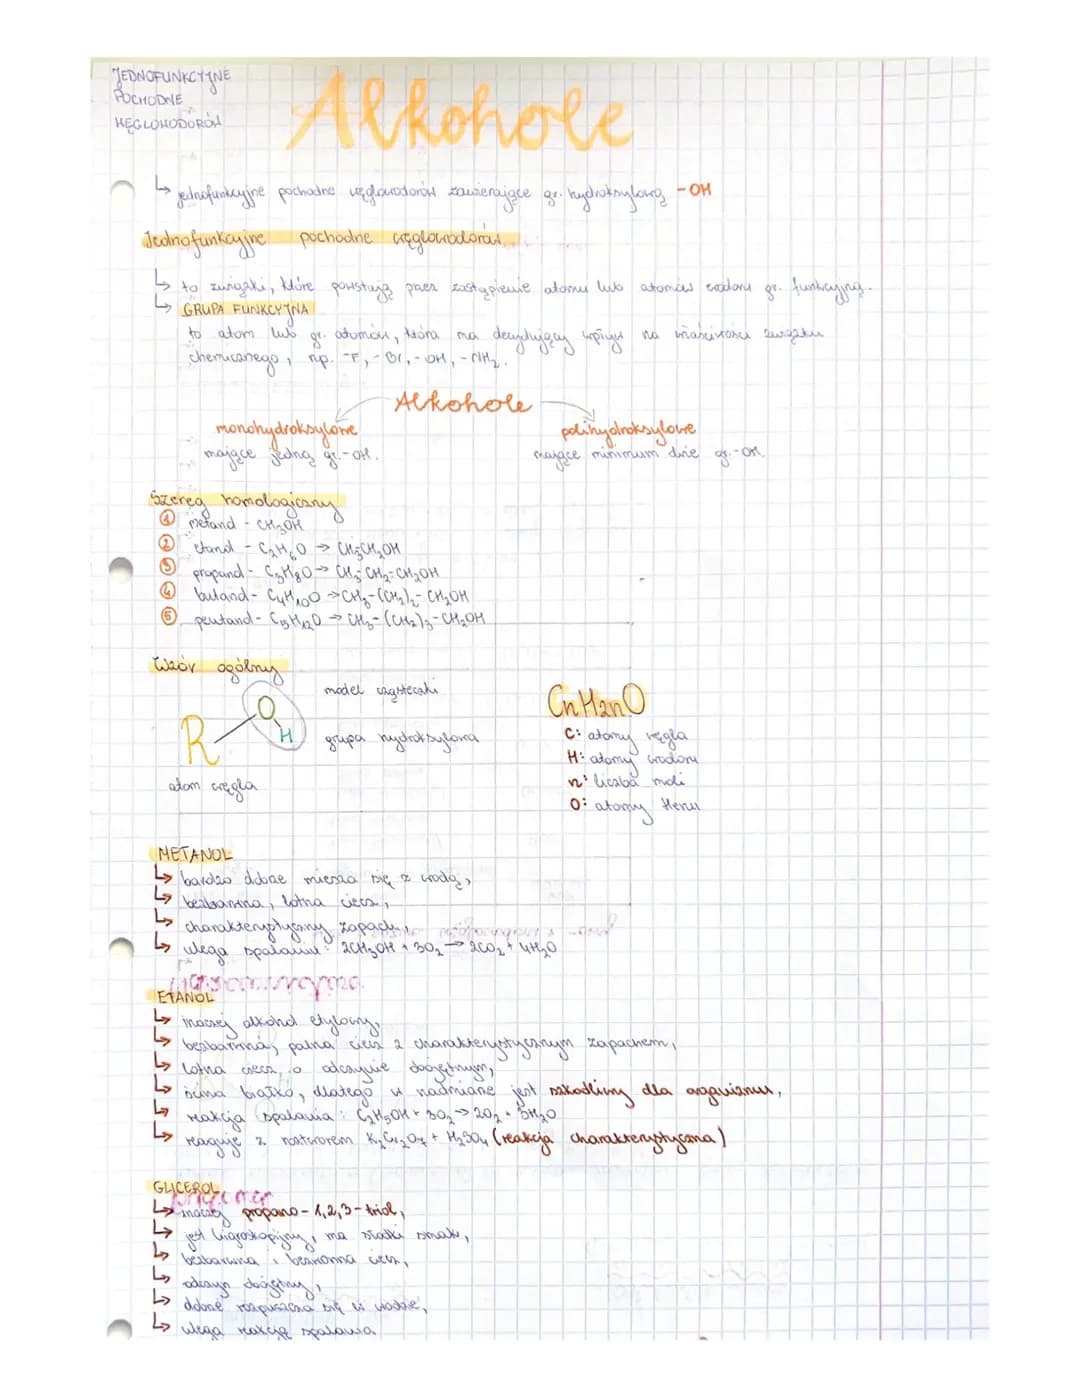 JEDNOFUNKCYJNE
POCHODNE
WĘGLOWODORÓW
Alkohole
↳ jednofunkcyjne pochodne węglowodorów zawierające gr. hydroksylową -OH
Jednofunkcyjne pochodne węglowodorów
↳ to związki, które powstają przez zastąpienie atomu lub atomów wodoru gr. funkcyjną.
↳ GRUPA FUNKCYJNA
to atom lub gr. atomów, która ma decydujący wpływ na właściwości związku
chemicznego, np. -F, -Br, -OH, -NH₂.
Alkohole
monohydroksylowe
mające jedną gr. -OH.
polihydroksylowe
mające minimum dwie gr. -OH.
Szereg homologiczny
① metanol - CH₃OH
② etanol - C₂H₆O → CH₃CH₂OH
③ propanol - C₃H₈O → CH₃-CH₂-CH₂OH
④ butanol - C₄H₁₀O → CH₃-(CH₂)₂-CH₂OH
⑤ pentanol - C₅H₁₂O → CH₃-(CH₂)₃-CH₂OH
Wzór ogólny
model cząsteczki
R O H
grupa hydroksylowa
atom węgla
CnH2nO
C: atomy węgla
H: atomy wodoru
n: liczba moli
O: atomy tlenu
METANOL
↳ bardzo dobrze miesza się z wodą,
↳ bezbarwna, lotna ciecz,
↳ charakterystyczny zapach,
↳ ulega spalaniu: 2CH₃OH + 3O₂ → 2CO₂ + 4H₂O
ETANOL
↳ inaczej alkohol etylowy,
↳ bezbarwna, palna ciecz z charakterystycznym zapachem,
↳ lotna ciecz, o odczynie obojętnym,
↳ ścina białko, dlatego w nadmiarze jest szkodliwy dla organizmu,
↳ reakcja spalania: C₂H₅OH + 3O₂ → 2O₂ + 3H₂O
↳ reaguje z roztworem K₂Cr₂O₇ + H₂SO₄ (reakcja charakterystyczna)
GLICEROL
↳ inaczej propano-1,2,3-triol,
↳ jest higroskopijny, ma słodki smak,
↳ bezbarwna i bezwonna ciecz,
↳ odczyn obojętny,
↳ dobrze rozpuszcza się w wodzie,
↳ ulega reakcję spalania.